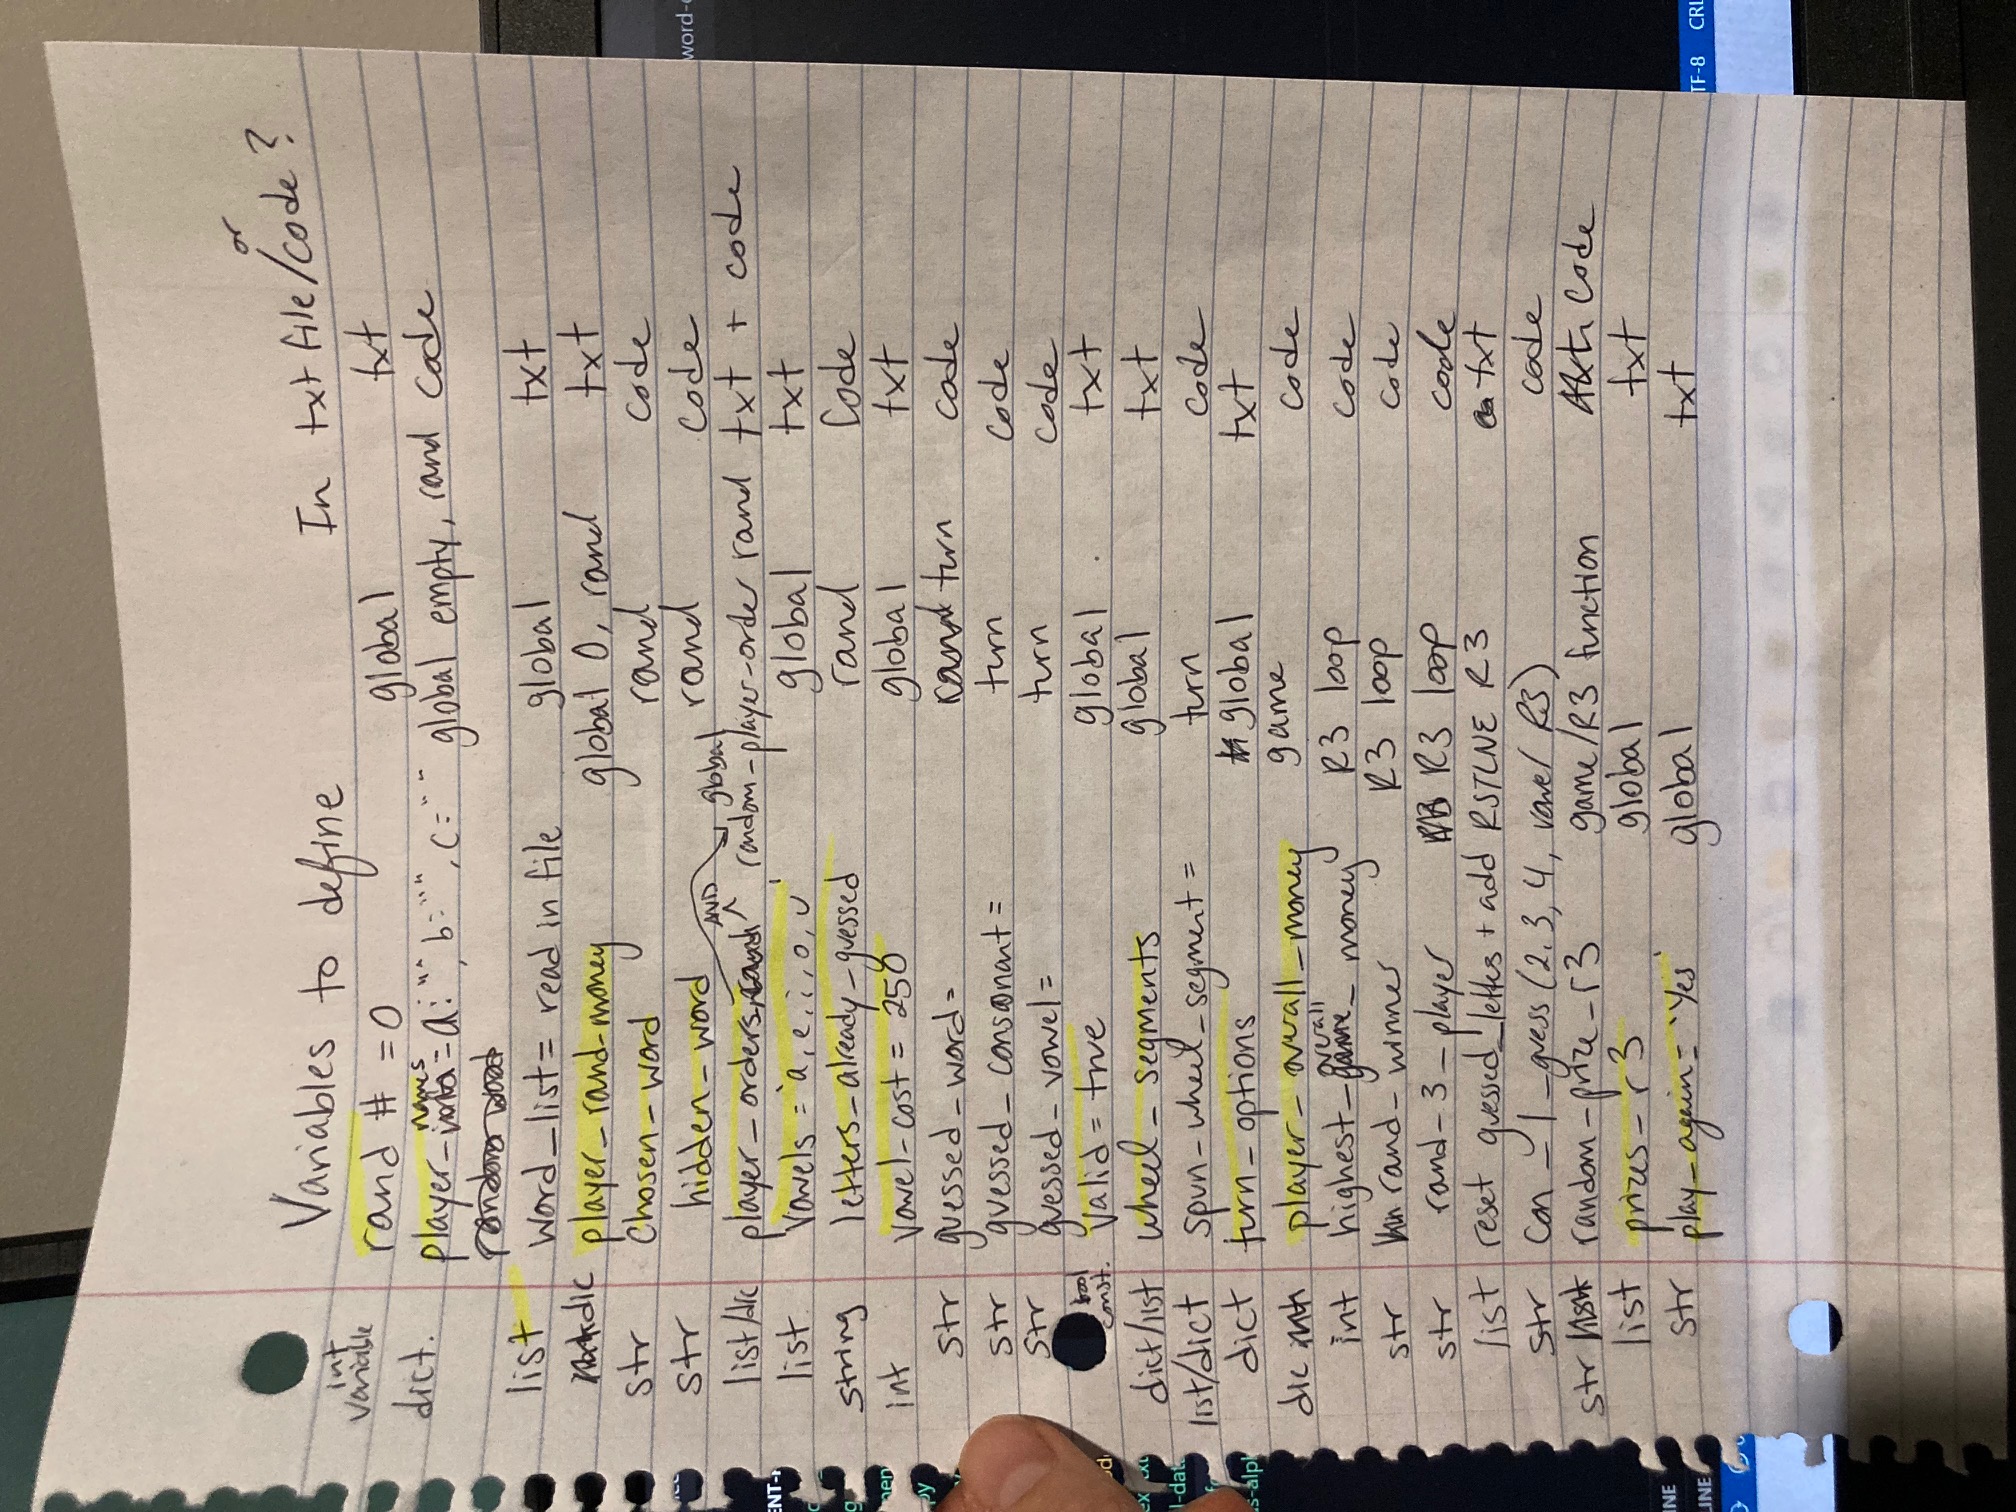 or
Variables to define In txt file/code?
int variable rand # = 0 global txt
dict. player_names = a: "", b: "", c= "" global empty, rand code
random word
list word_list = read in file global txt
dic player_rand_money global 0, rand txt
str chosen_word rand code
str hidden_word rand code
AND global
list/dic player_orders, random_player_order rand txt + code
list vowels = 'a, e, i, o, u' global txt
string letters_already_guessed rand Code
int vowel_cost = 250 global txt
str guessed_word= turn code
str guessed_consonant = turn code
str guessed_vowel = turn code
bool const. valid = true global txt
dict/list wheel_segments global txt
list/dict spun_wheel_segment = turn code
dict turn_options global txt
dic player_overall_money game code
int highest_overall_money R3 loop code
str rand_winner R3 loop code
str rand_3_player R3 loop code
list reset guessed_lettes + add RSTLNE R3 txt
str Con_1_guess (2, 3, 4, vowel R3) code
str random_prize_r3 game/R3 function code
list prizes_r3 global txt
str play_again = 'Yes' global txt
word-
ENT-
TF-8 CRL
INE
LINE
-alpl
l-dat